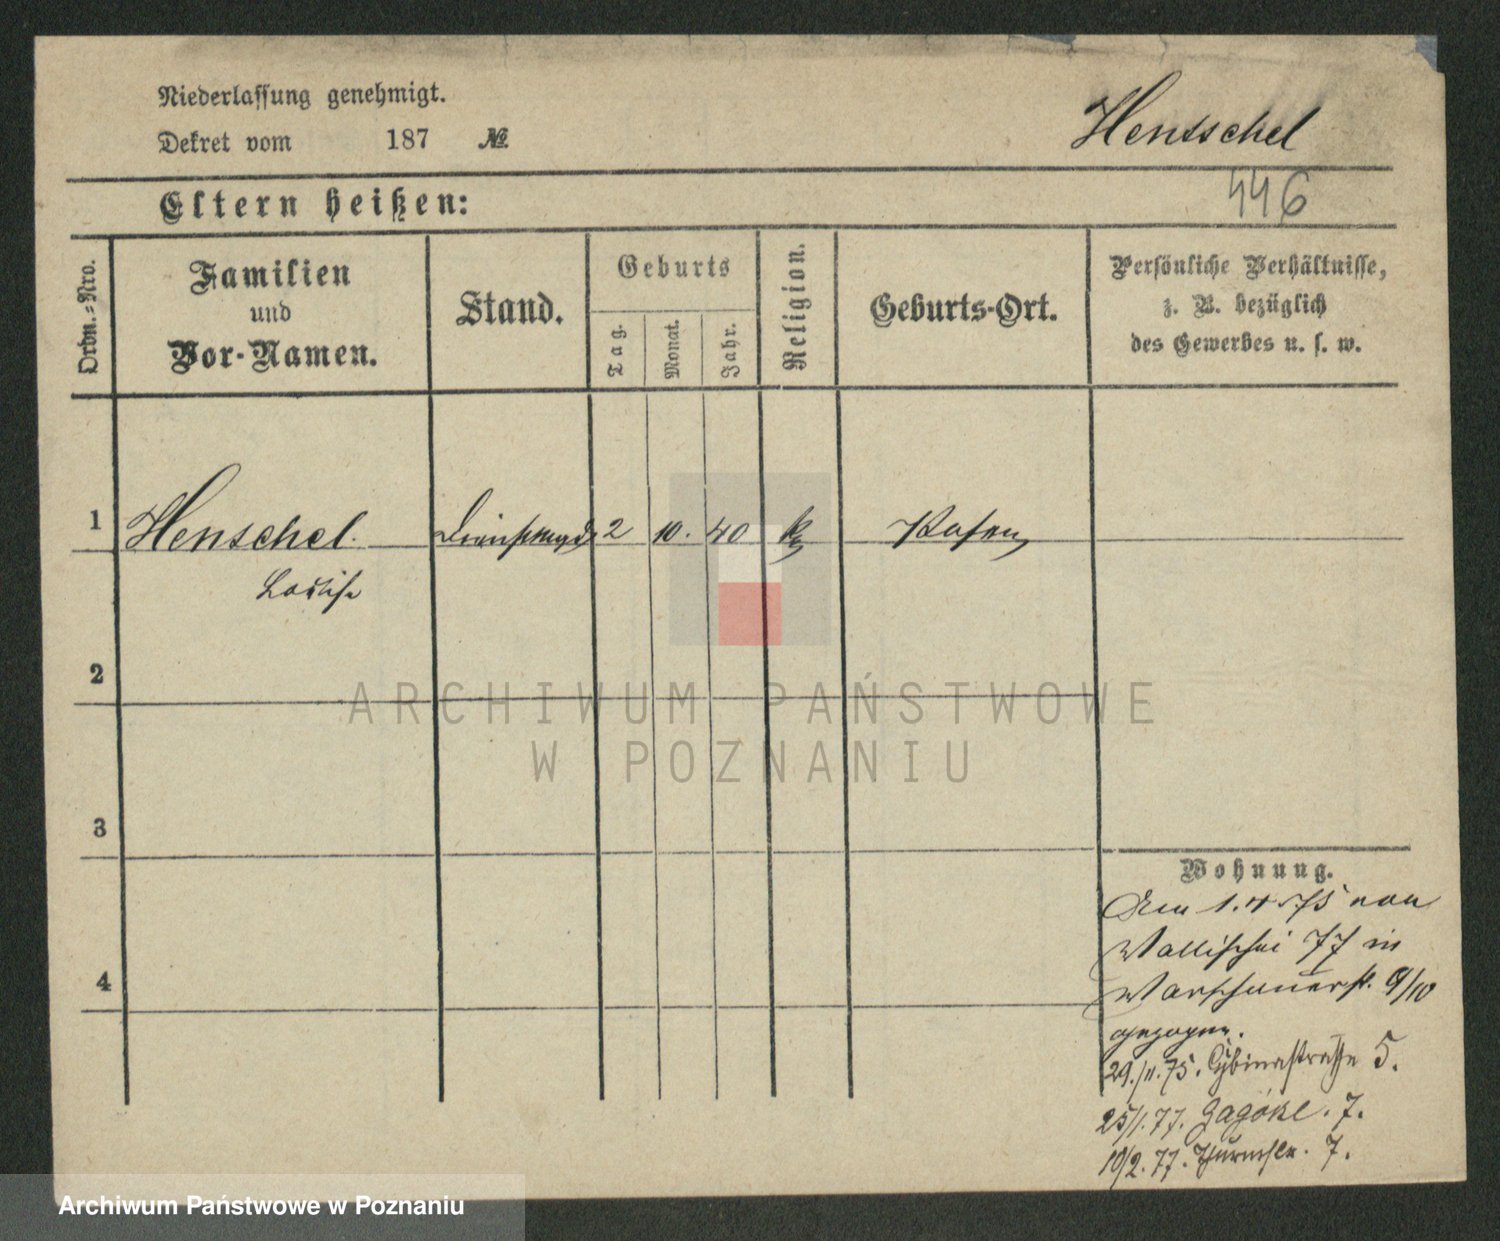 Niederlassung genehmigt.
Dekret vom 187 №
Henschel
446
Eltern heißen:
Ordn.-Nro.
Familien
und
Vor-Namen.
Stand.
Geburts
Tag.
Monat.
Jahr.
Religion.
Geburts-Ort.
Persönliche Verhältnisse,
z. B. bezüglich
des Gewerbes u. s. w.
1 Henschel. 2 10. 40 k Posen
Louise
2
3
4
ARCHIWUM PAŃSTWOWE
W POZNANIU
Wohnung.
Am 1.4.75 von
Wallischei 77 in
Warschauerst. 9/10
gezogen.
29./11.75. Cybinastraße 5.
25/1.77. Zagórze. 7.
10/2.77. Thurmstr. 7.
Archiwum Państwowe w Poznaniu